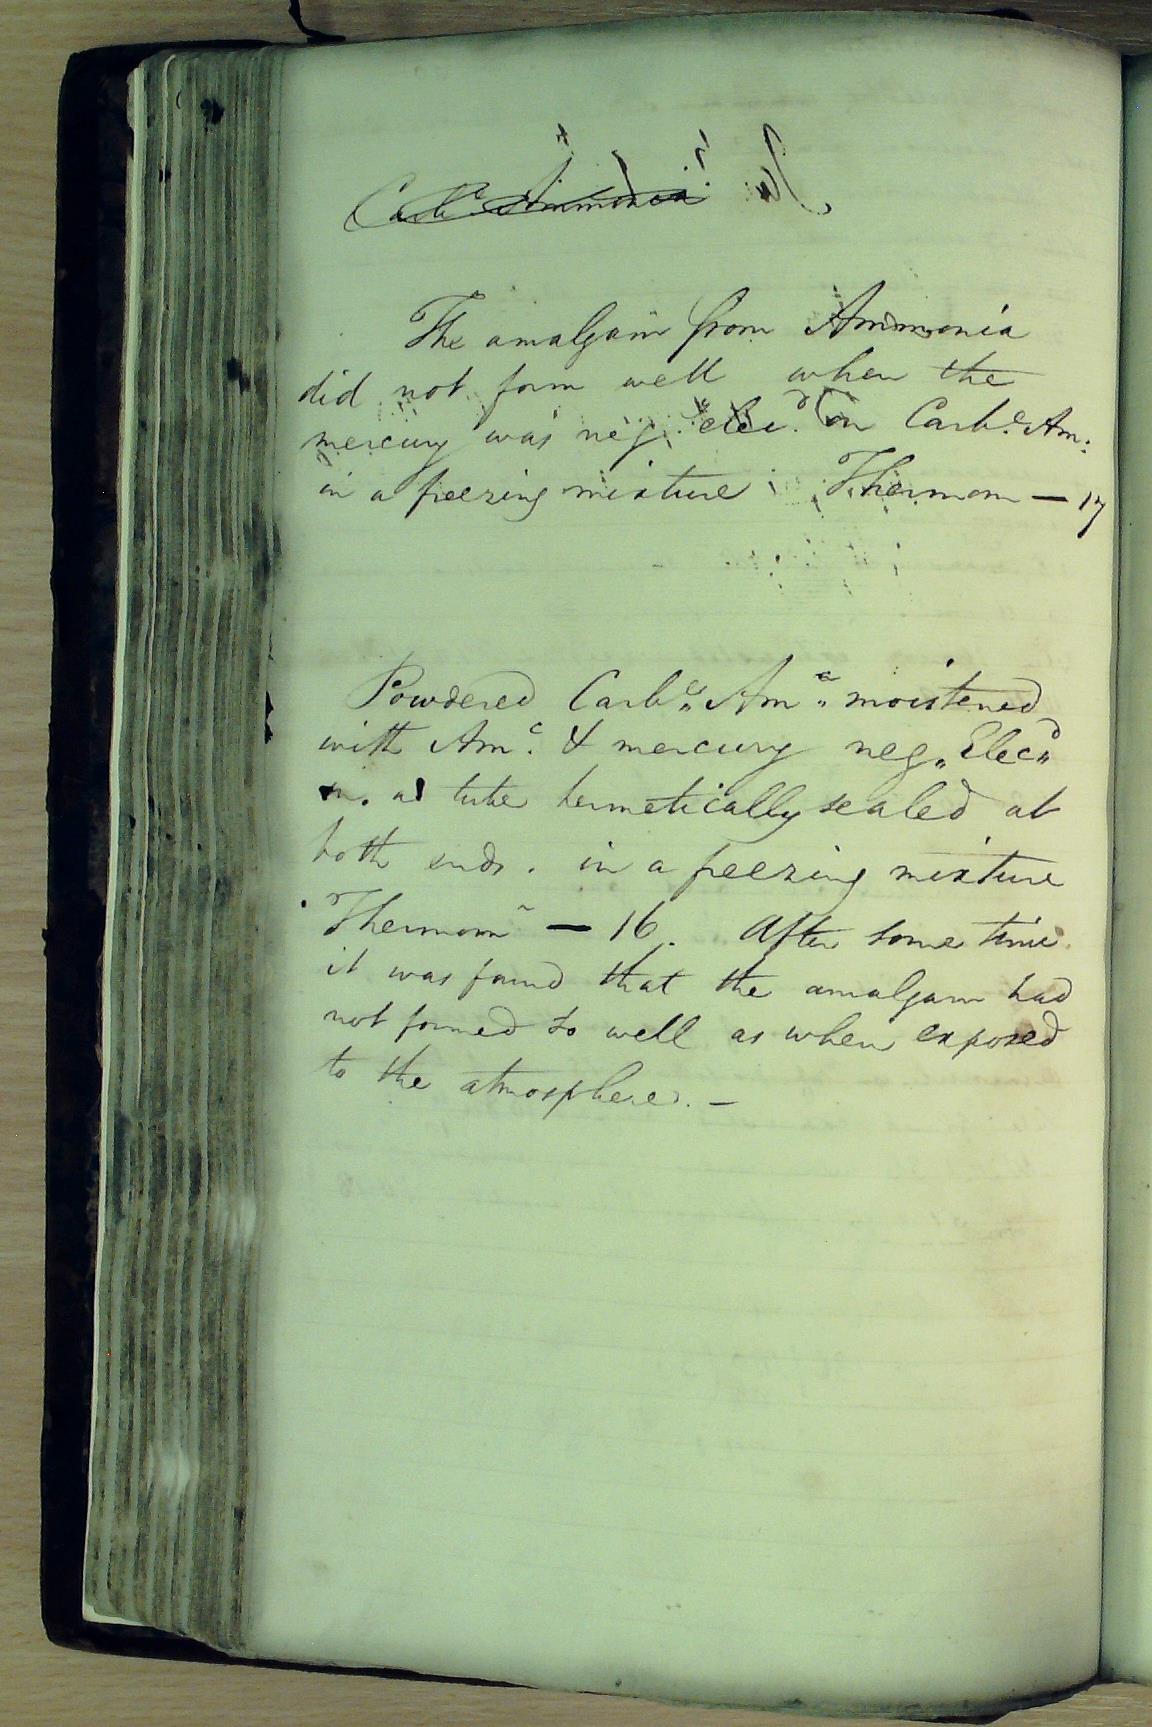 Carb.c Ammonia
The amalgam from Ammonia
did not form well when the
mercury was neg. elec.d on Carb.e Am:
in a freezing mixture Thermom — 17
Powdered Carb.e Am.a moistened
with Am.a & mercury neg. Elec.d
in a tube hermetically sealed at
both ends. in a freezing mixture
Thermom — 16. After some time
it was found that the amalgam had
not formed so well as when exposed
to the atmosphere. —